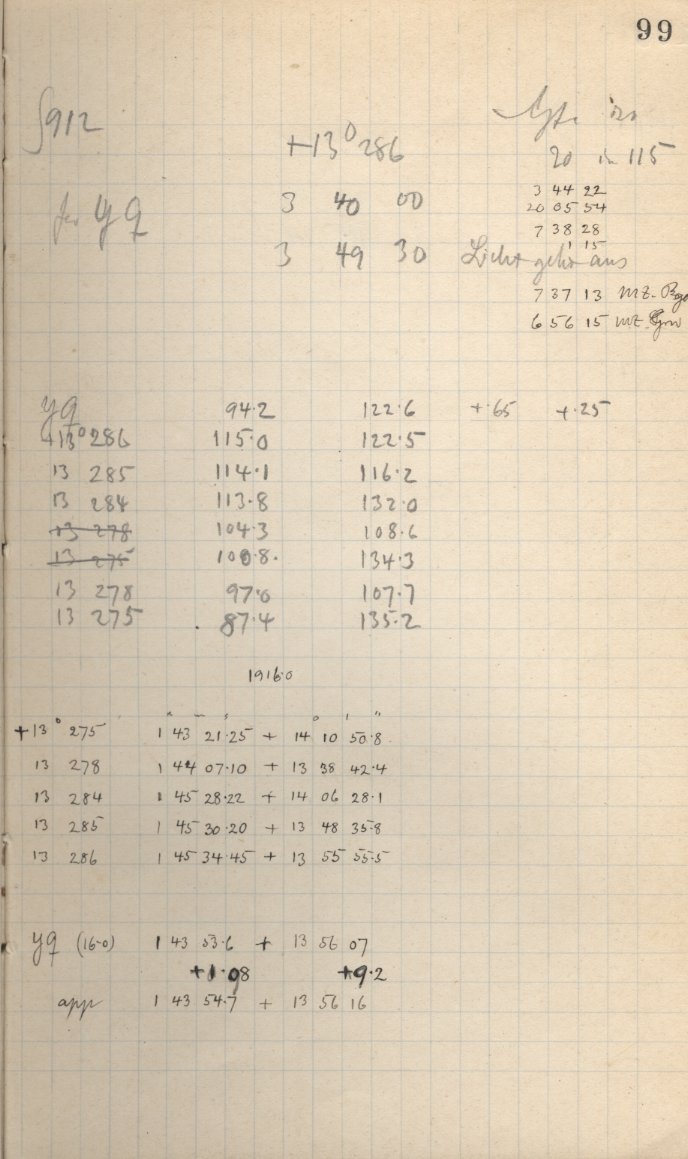 99
912
+13° 286
20 in 115
3 44 22
20 05 54
yq 3 40 00
7 38 28
1 15
3 49 30 Licht geht aus
7 37 13 mZ.
6 56 15 mZ.
yq 94.2 122.6 +.65 +.25
+13° 286 115.0 122.5
13 285 114.1 116.2
13 284 113.8 132.0
13 278 104.3 108.6
13 275 100.8. 134.3
13 278 97.0 107.7
13 275 87.4 135.2
1916.0
h m s ° ' "
+13° 275 1 43 21.25 + 14 10 50.8
13 278 1 44 07.10 + 13 38 42.4
13 284 1 45 28.22 + 14 06 28.1
13 285 1 45 30.20 + 13 48 35.8
13 286 1 45 34.45 + 13 55 55.5
yq (16.0) 1 43 53.6 + 13 56 07
+1.08 +9.2
app 1 43 54.7 + 13 56 16